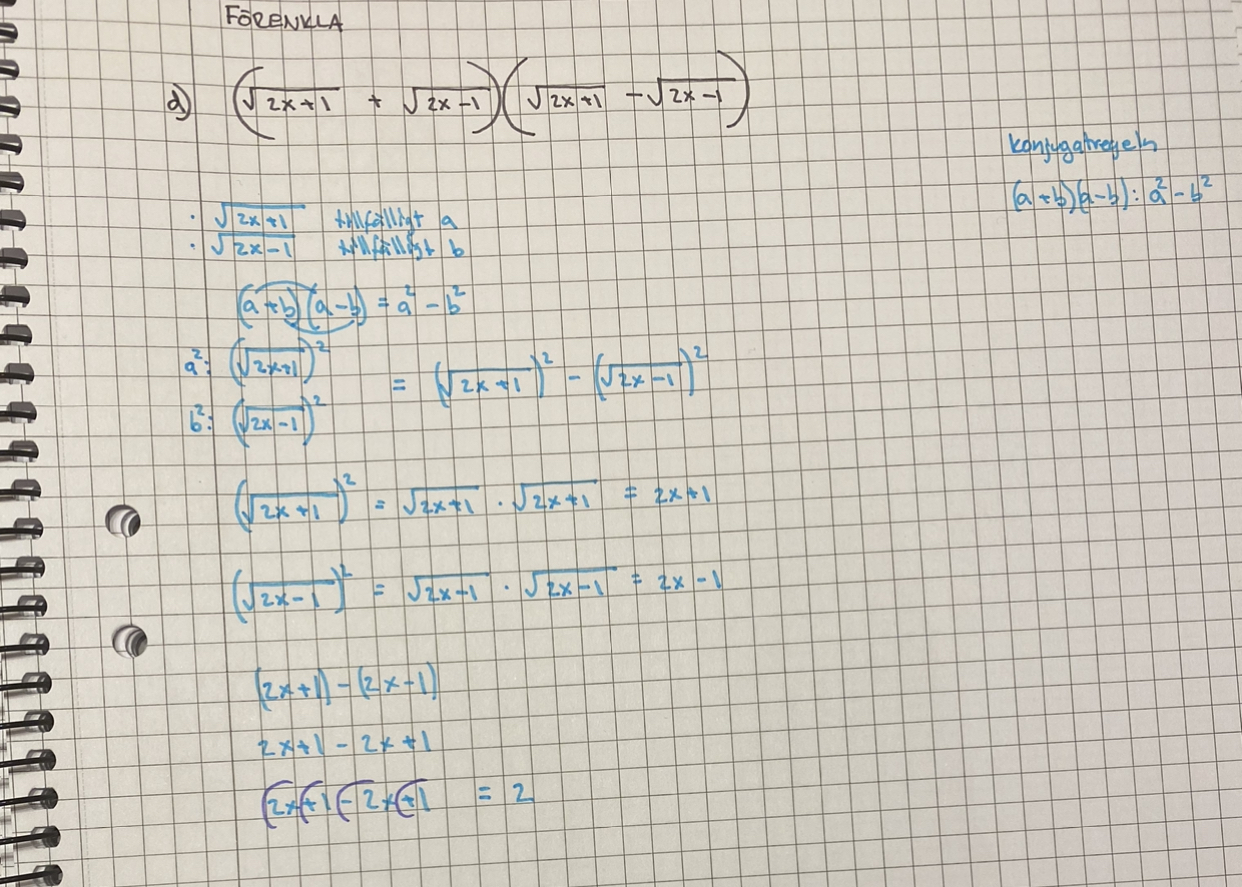 FÖRENKLA
d) (√(2x+1) + √(2x-1))(√(2x+1) - √(2x-1))
konjugatregeln
(a+b)(a-b): a² - b²
· √(2x+1) tillfälligt a
· √(2x-1) tillfälligt b
(a+b)(a-b) = a² - b²
a²: (√(2x+1))²
= (√(2x+1))² - (√(2x-1))²
b²: (√(2x-1))²
(√(2x+1))² = √(2x+1) · √(2x+1) = 2x+1
(√(2x-1))² = √(2x-1) · √(2x-1) = 2x-1
(2x+1) - (2x-1)
2x+1 - 2x+1
2x+1-2x+1 = 2